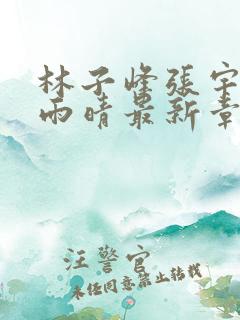 林子峰張宇
雨晴最新章
汪警官
未經同意禁止轉載